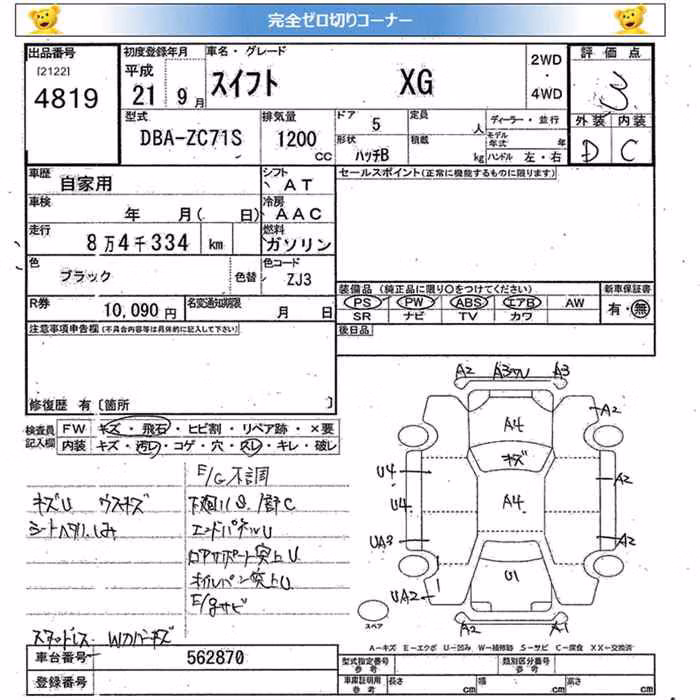 完全ゼロ切りコーナー
出品番号
[2122]
4819
初度登録年月
平成
21 9月
車名・グレード
スイフト XG
2WD
・
4WD
評価点
3
外装 内装
D C
型式
DBA-ZC71S
排気量
1200
CC
ドア 5
形状 ハッチB
定員 人
積載 kg
ディーラー・並行
モデル年式 年
ハンドル 左・右
車歴
自家用
シフト
AT
セールスポイント(正常に機能するものに限ります)
車検
年 月( 日)
冷房
AAC
走行
8万4千334 km
燃料
ガソリン
色
ブラック
色替
色コード
ZJ3
装備品 (純正品に限り○をつけてください)
PS PW ABS エアB AW
SR ナビ TV カワ
新車保証書
有・無
R券
10,090円
名変通知期限
月 日
後日品
注意事項申告欄(不具合内容等は具体的に記入して下さい)
修復歴 有〔箇所 〕
検査員記入欄
FW キズ・飛石・ヒビ割・リペア跡・×要
内装 キズ・汚レ・コゲ・穴・スレ・キレ・破レ
E/G不調
キズU ウスキズ
シートヘタリ、しみ
エンドパネルU
ロアサポート突上U
オイルパン突上U
E/gサビ
スタッドレス
A2 A3 A3
A4
A2
キズ
U4
A2
U4
A4
UA3
A2
U1
UA2
A2 A1
スペア
A−キズ E−エクボ U−凹み W−補修跡 S−サビ C−腐食 XX−交換済
車台番号
562870
型式指定番号 参考
類別区分番号 参考
登録番号
車庫証明用 参考
長さ cm
幅 cm
高さ cm